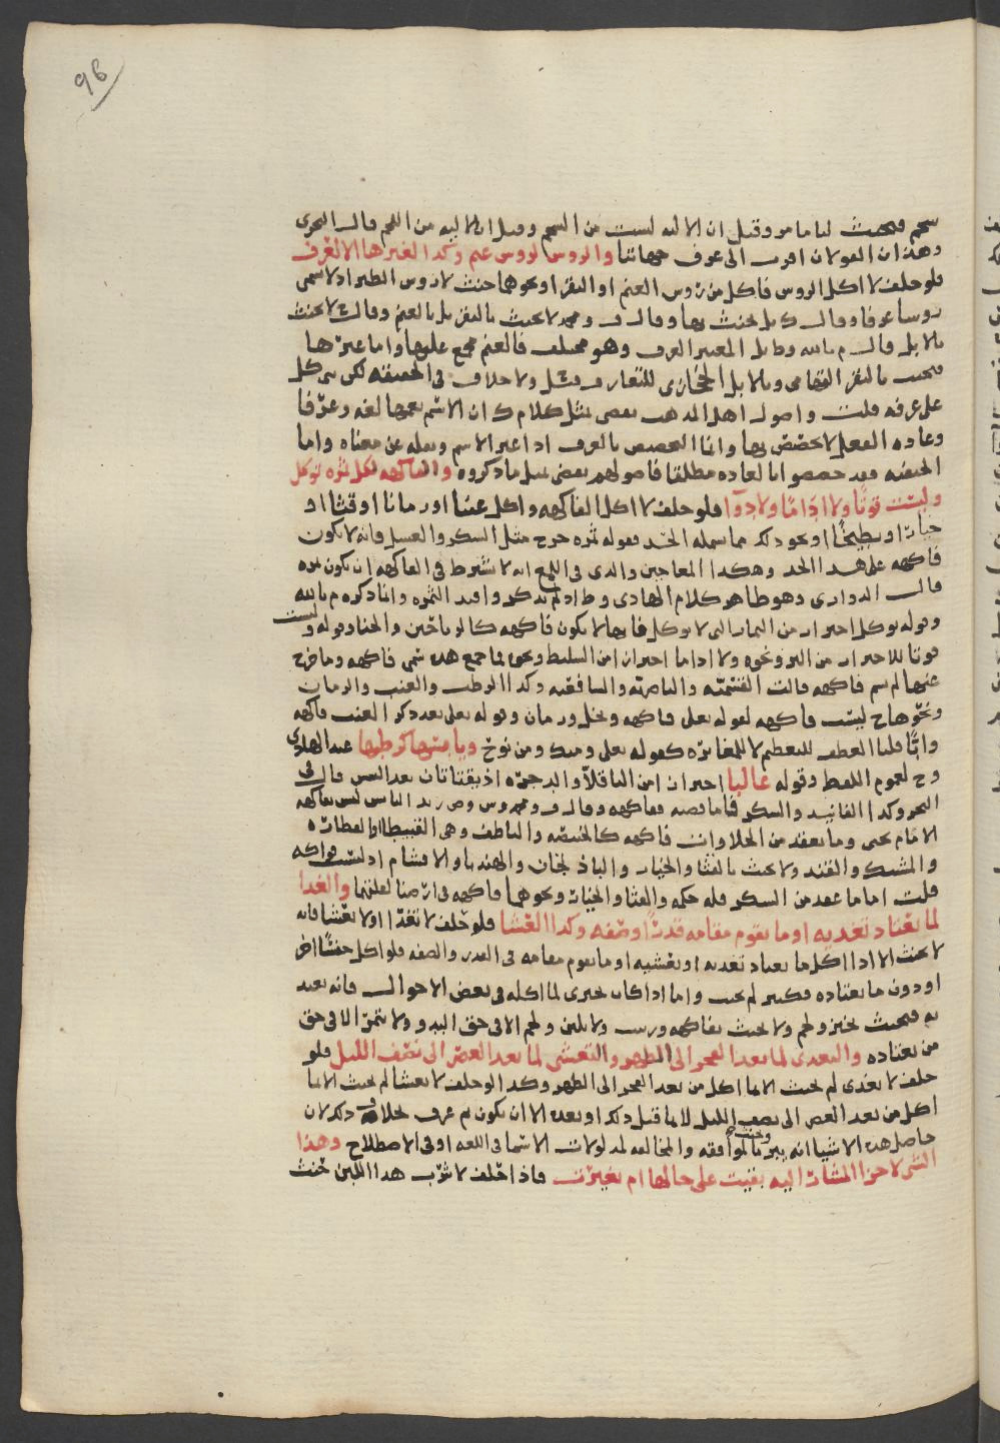 96
شحم فيحنث لنا ما مر وقيل ان الالية ليست من الشحم وقيل ان الالية من اللحم قال البحري
وهذان القولان اقرب الى عرف جهاتنا والروس لروس غنم وكذا لغيرها الا لعرف
فلو حلف لا اكل الروس فاكل من روس الغنم او البقر او نحوهما حنث لا روس الطير اذ لا تسمى
روسا عرفا وقال ك بل يحنث بها وقال ف ومحمد لا يحنث بالبقر بل بالغنم وقال ش لا يحنث
بالابل قال م بالله وط بل المعتبر العرف وهو مختلف فالغنم مجمع عليها واما غيرها
فيحنث بالبقر التهامى وبالابل الحجازى للتعارف قيل ولا خلاف فى الحقيقة لكن بنى كل
على عرفه قلت واصول اهل المذهب تقضى بمثل كلام ك ان الاسم يعمها لغة وعرفا
وعادة الفعل لا تخصص بها وانما التخصيص بالعرف اذا غير الاسم ونقله عن معناه واما
الحنفية فقد خصصوا بالعادة مطلقا فاصولهم تقضى بمثل ما ذكروه والفاكهة لكل ثمرة توكل
وليست قوتًا ولا ادامًا ولا دوآ فلو حلف لا اكل الفاكهة واكل عنبا او رمانا او قثا او
خيارا او بطيخًا او نحو ذلك مما يشمله الحد فقوله ثمرة خرج مثل السكر والعسل فانه لا يكون
فاكهة على هذا الحد وهكذا المعاجين والذى فى اللمع انه لا يشترط فى الفاكهة ان يكون ثمرة
قال الدوارى وهو ظاهر كلام الهادى وط اذ لم يذكروا قيد الثمرة وانما ذكره م بالله
وقوله توكل احتراز من الثمار التى لا توكل فانها لا تكون فاكهة كالرياحين والحنا وقوله وليست
قوتا للاحتراز من البر ونحوه ولا اداما احتراز من السليط ونحوه فما جمع هذه سمى فاكهة وما خرج
عنها لم يسم فاكهة قالت القسمية والناصرية والشافعية وكذا الرطب والعنب والرمان
ونحوها ح ليست فاكهة لقوله تعلى فاكهة ونخل ورمان وقوله تعلى بعد ذكر العنب فاكهة
وابًّا قلنا العطف للتعظيم لا للمغايرة كقوله تعلى ومنك ومن نوح ويابسها كرطبها عند الهادى
وح لعموم اللفظ وقوله غالبا احتراز من الباقلآ والدجرة اذ يقتاتان بعد اليبس قال فى
البحر وكذا الفانيد والسكر فاما قصبه ففاكهة وقال ف ومحمد وس وص زبد الناس ليس بفاكهة
الامام يحيى وما يعقد من الحلاوات فاكهة كالخبيصة والناطف وهى القبيطا او القطارة
والمشبك والقند ولا يحنث بالقثا والخيار والباذنجان والهندبا والاقسام اذ ليست فواكه
قلت اما ما عقد من السكر فله حكمه والقثا والخيار ونحوهما فاكهة فى ارضنا لقلتهما والغدا
لما يعتاد تغديه او ما يقوم مقامه قدرًا وصفة وكذا العشا فلو حلف لا تغدا او لا تعشا فانه
لا يحنث الا اذا اكل ما يعتاد تغديه او تعشيه او ما يقوم مقامه فى القدر والصفة فلو اكل جنسًا اخر
او دون ما يعتاده فكسر لم يحنث واما اذا كان يجرى لما اكله فى بعض الاحوال فانه يعتد
به فيحنث بخبز ولحم ولا يحنث بفاكهة وزبيب ولا بلبن ولحم الا فى حق البدو ولا بتمر الا فى حق
من يعتاده والتغدى لما بعد الفجر الى الظهر والتعشى لما بعد العصر الى نصف الليل فلو
حلف لا تغدى لم يحنث الا بما اكل من بعد الفجر الى الظهر وكذا لو حلف لا تعشا لم يحنث الا بما
اكل من بعد العصر الى نصف الليل لا ما قبل ذلك او بعده الا ان يكون ثم عرف بخلاف ذلك لان
حاصل هذه الاشيا انه يبر ويحنث بالموافقة والمخالفة لمدلولات الاسما فى اللغة او فى الاصطلاح وهذا
الشى لاجزا المشار اليه بقيت على حالها ام تغيرت فاذا حلف لا شرب هذا اللبن حنث